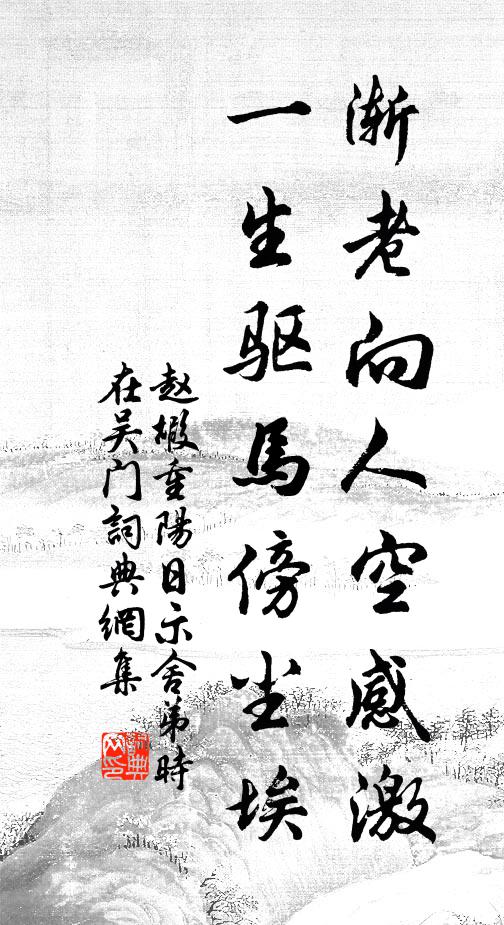 渐老向人空感激
一生驱馬傍尘埃
赵嘏重陽日示舍弟時
在吴门詞典網集